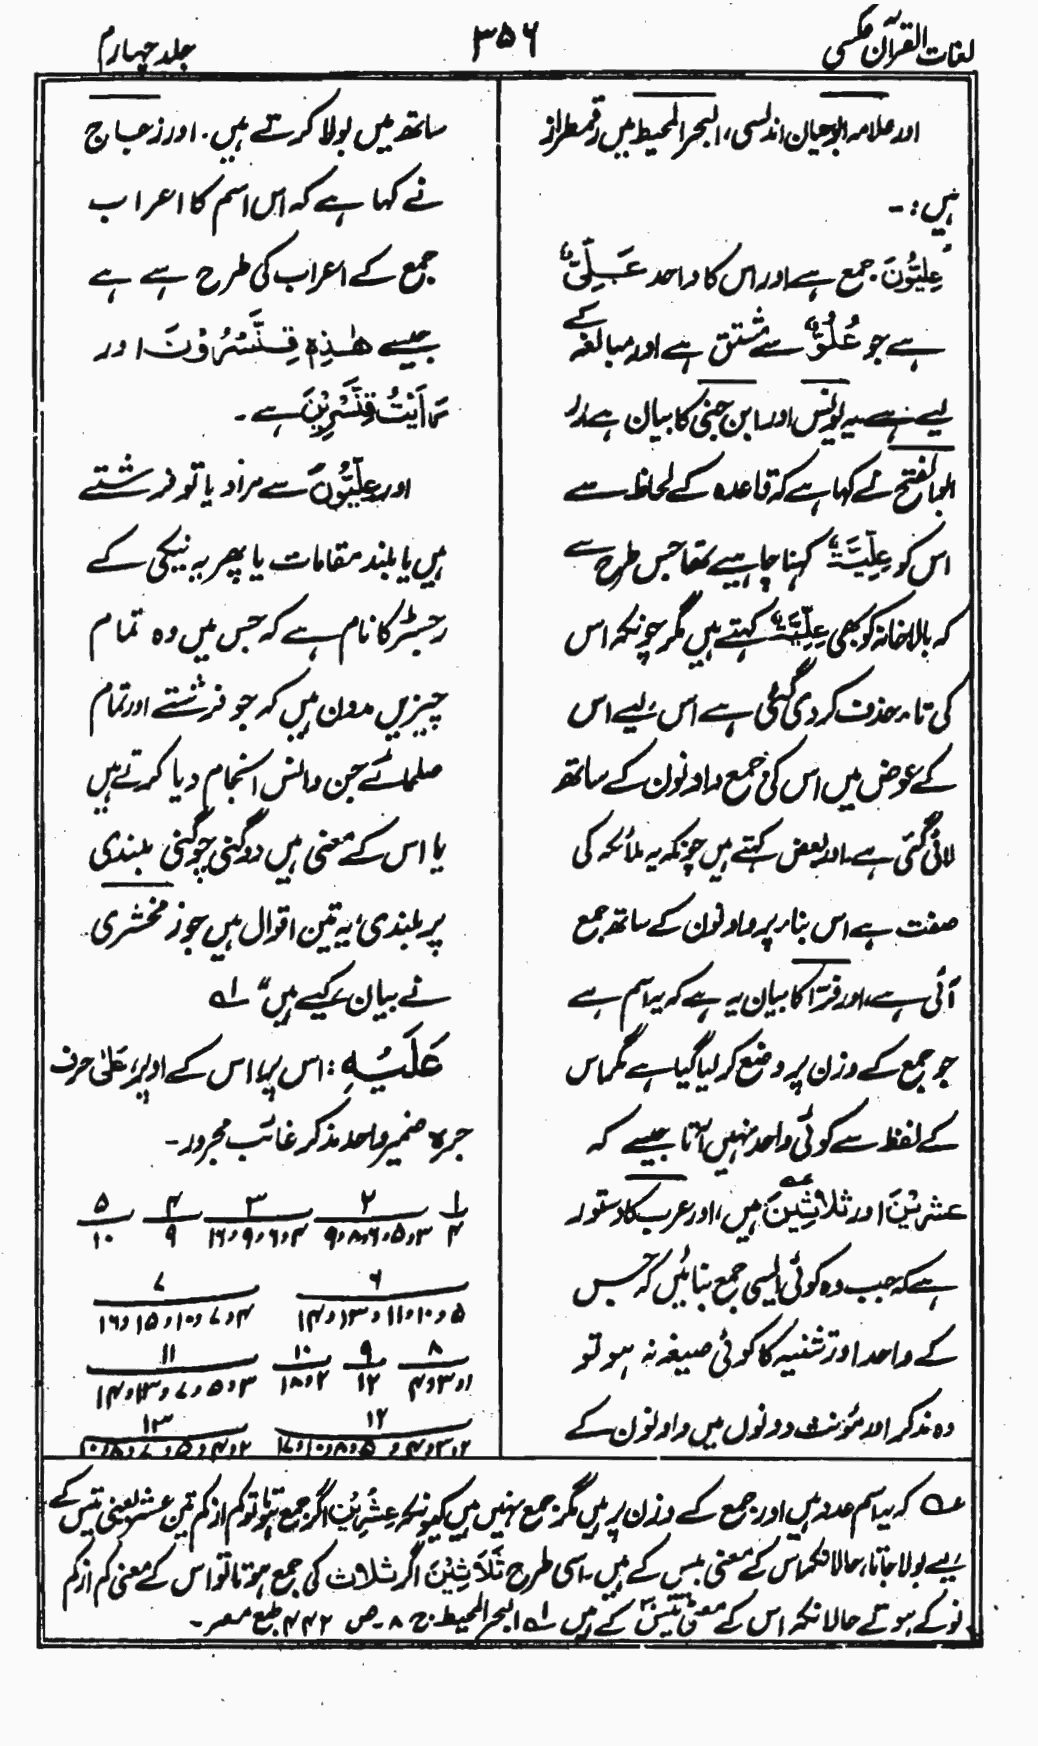 لغات القرآن عکسی
۳۵۶
جلد چہارم
اور علامہ ابوحیان اندلسی، البحر المحیط میں رقمطراز
ہیں :-
عِلِّیُّونَ جمع ہے اور اس کا واحد عَلِیٌّ
ہے جو عُلُوٌّ سے مشتق ہے اور مبالغہ کے
لیے ہے یہ یونس اور ابن جنی کا بیان ہے اور
ابوالفتح نے کہا ہے کہ قاعدہ کے لحاظ سے
اس کو عِلِّیَّۃٌ کہنا چاہیے تھا جس طرح سے
کہ بالاخانہ کو بھی عِلِّیَّۃٌ کہتے ہیں مگر چونکہ اس
کی تاء حذف کر دی گئی ہے اس لیے اس
کے عوض میں اس کی جمع واو نون کے ساتھ
لائی گئی ہے۔ اور بعض کہتے ہیں چونکہ یہ ملائکہ کی
صفت ہے اس بناء پر واو نون کے ساتھ جمع
آئی ہے، اور فرّا کا بیان یہ ہے کہ یہ اسم ہے
جو جمع کے وزن پر وضع کر لیا گیا ہے مگر اس
کے لفظ سے کوئی واحد نہیں آتا جیسے کہ
عشرِیْنَ اور ثلاثِینَ ہیں، اور عرب کا دستور
ہے کہ جب وہ کوئی ایسی جمع بنائیں کہ جس
کے واحد اور تثنیہ کا کوئی صیغہ نہ ہو تو
وہ مذکر اور مؤنث دونوں میں واو نون کے
ساتھ میں بولا کرتے ہیں۔ اور زجاج
نے کہا ہے کہ اس اسم کا اعراب
جمع کے اعراب کی طرح ہے ہے
جیسے ھٰذِہٖ قِنَّسْرُوْنَ اور
رَاَیْتُ قِنَّسْرِیْنَ ہے۔
اور عِلِّیُّونَ سے مراد یا تو فرشتے
ہیں یا بلند مقامات یا پھر یہ نیکی کے
رجسٹر کا نام ہے کہ جس میں وہ تمام
چیزیں مدون ہیں کہ جو فرشتے اور تمام
صلحائے جن و انس انجام دیا کرتے ہیں
یا اس کے معنی ہیں دوگنی چوگنی بلندی
پر بلندی، یہ تین اقوال ہیں جو زمخشری
نے بیان کیے ہیں" لہ
عَلَیْہِ : اس پر، اس کے اوپر، عَلٰی حرف
جر ہ ضمیر واحد مذکر غائب مجرور۔
۱ ۲ ۳ ۴ ۵
۴ ۳،۵،۶،۸،۹ ۴،۶،۹،۱۶ ۹ ۱۰
۶ ۷
۵،۱۰،۱۱،۱۳،۱۴ ۴،۷،۱۰،۱۵،۱۶
۸ ۹ ۱۰ ۱۱
۱،۳،۴ ۱۲ ۲،۱۸ ۳،۵،۷،۱۳،۱۴
۱۲ ۱۳
۲،۳،۴،۵،۸،۱۰،۱۷ ۲،۴،۵،۷،۸،۱۰
عہ کہ یہ اسم عدد ہیں اور جمع کے وزن پر ہیں مگر جمع نہیں ہیں کیونکہ عِشْرِیْن اگر جمع ہوتا تو کم از کم تین عشر یعنی تیس کے
لیے بولا جاتا، حالانکہ اس کے معنی بیس کے ہیں۔ اسی طرح ثَلَاثِیْنَ اگر ثلاث کی جمع ہوتا تو اس کے معنی کم از کم
نو کے ہوتے حالانکہ اس کے معنی تیس کے ہیں لہ البحر المحیط ج ۸ ص ۴۴۲ طبع مصر۔